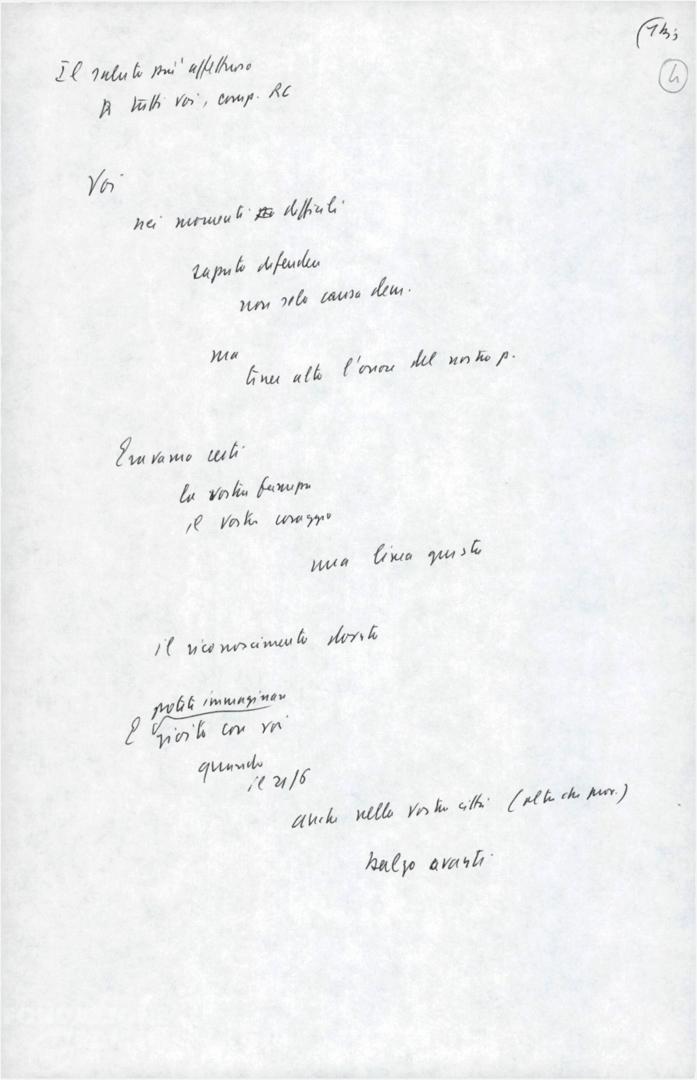 (1 bis
4
Il saluto più affettuoso
A tutti voi, comp. RC
Voi
nei momenti difficili
saputo difendere
non solo causa dem.
ma
tener alto l'onore del nostro p.
Eravamo certi
la vostra
il vostro coraggio
una linea giusta
il riconoscimento dovuto
potete immaginare
E gioito con voi
quando
il 21/6
anche nella vostra città (oltre che prov.)
balzo avanti